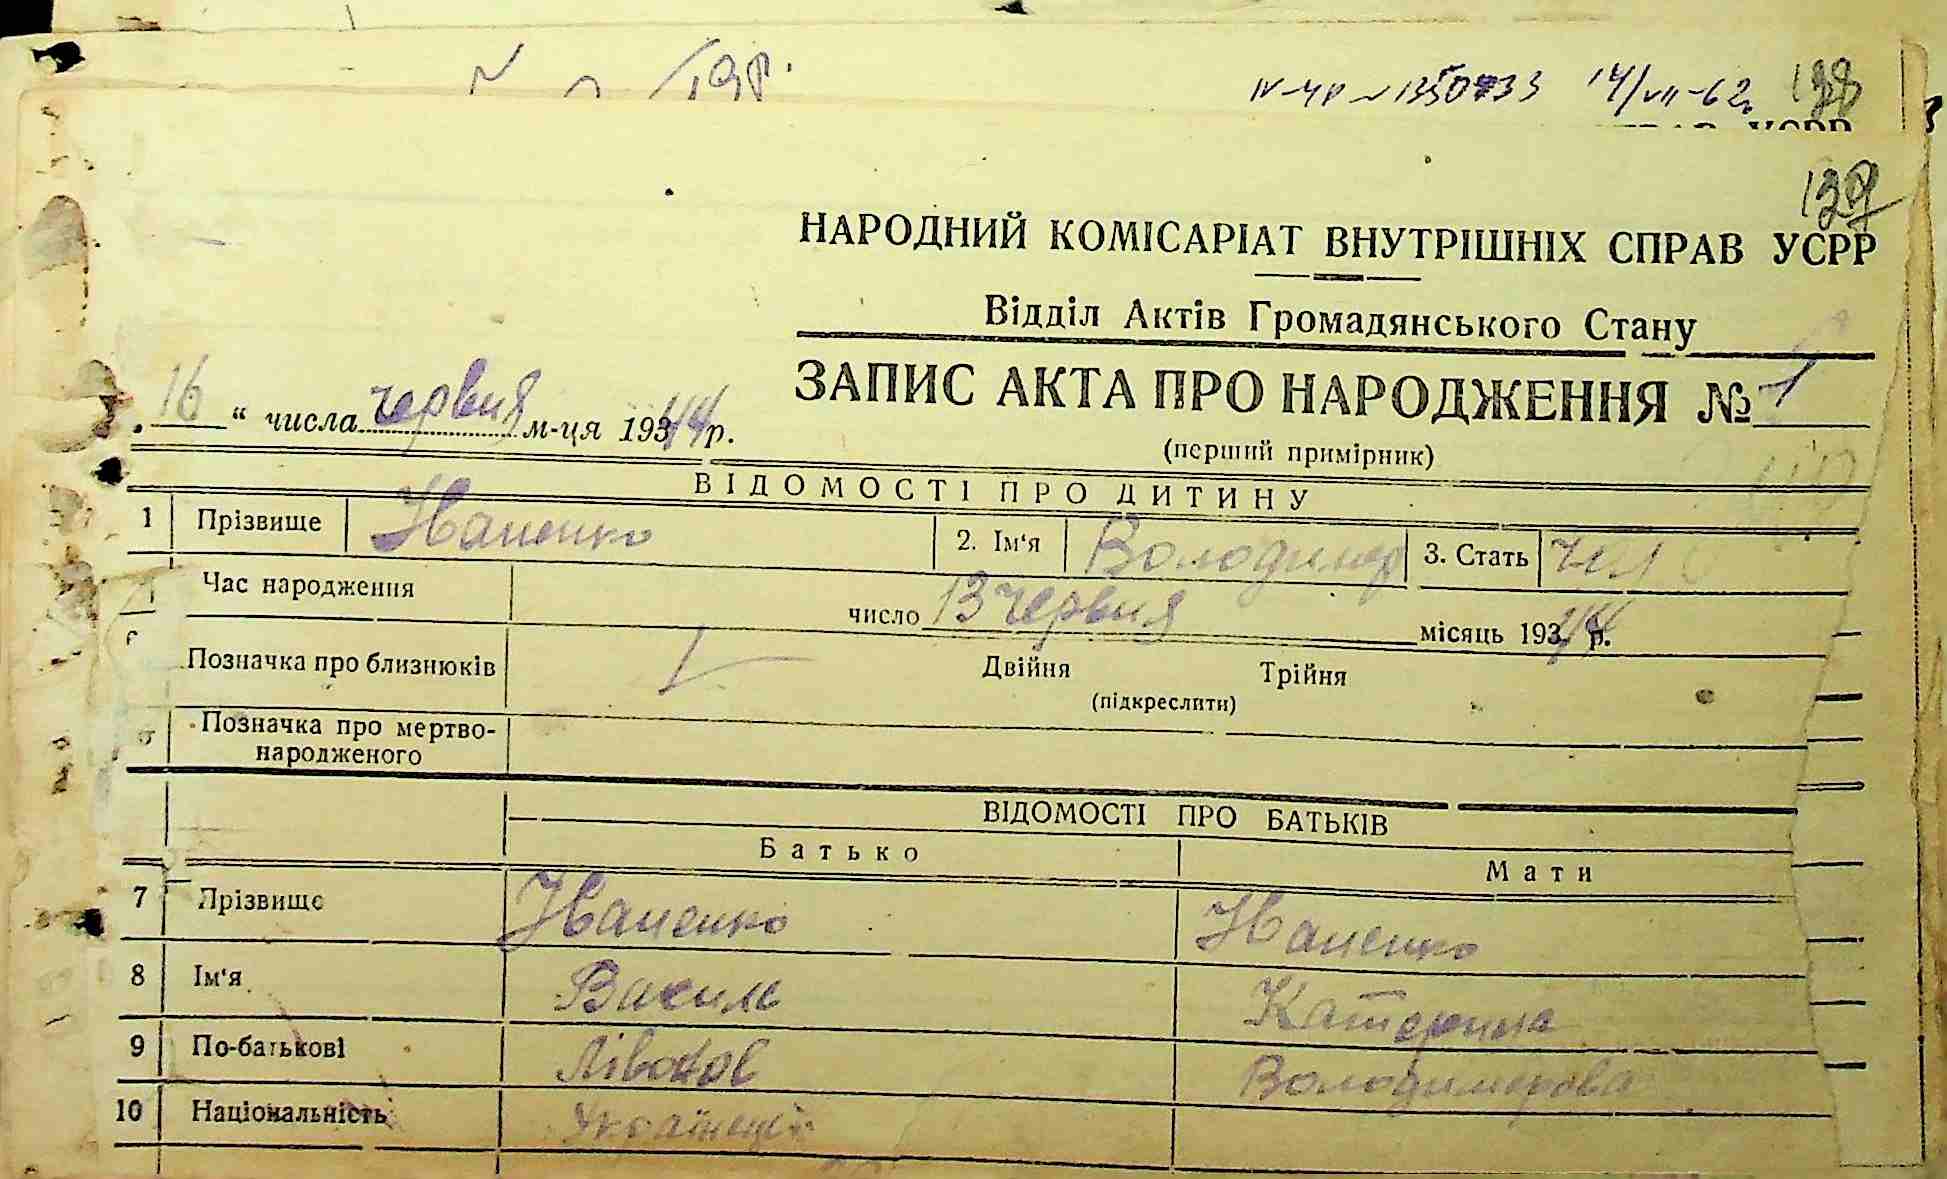 IV-УР № 1350733 14/VII-62г. 138
139
НАРОДНИЙ КОМІСАРІАТ ВНУТРІШНІХ СПРАВ УСРР
Відділ Актів Громадянського Стану
ЗАПИС АКТА ПРО НАРОДЖЕННЯ № 1
„ 16 “ числа червня м-ця 19344 р.
(перший примірник)
ВІДОМОСТІ ПРО ДИТИНУ
1 Прізвище Іваненко 2. Ім'я Володимер 3. Стать чол
Час народження число 13 червня місяць 19344 р.
Позначка про близнюків Двійня Трійня
(підкреслити)
6 Позначка про мертво-
народженого
ВІДОМОСТІ ПРО БАТЬКІВ
Батько Мати
7 Прізвище Іваненко Іваненко
8 Ім'я Василь Катерина
9 По-батькові Володимирова
10 Національність Українець